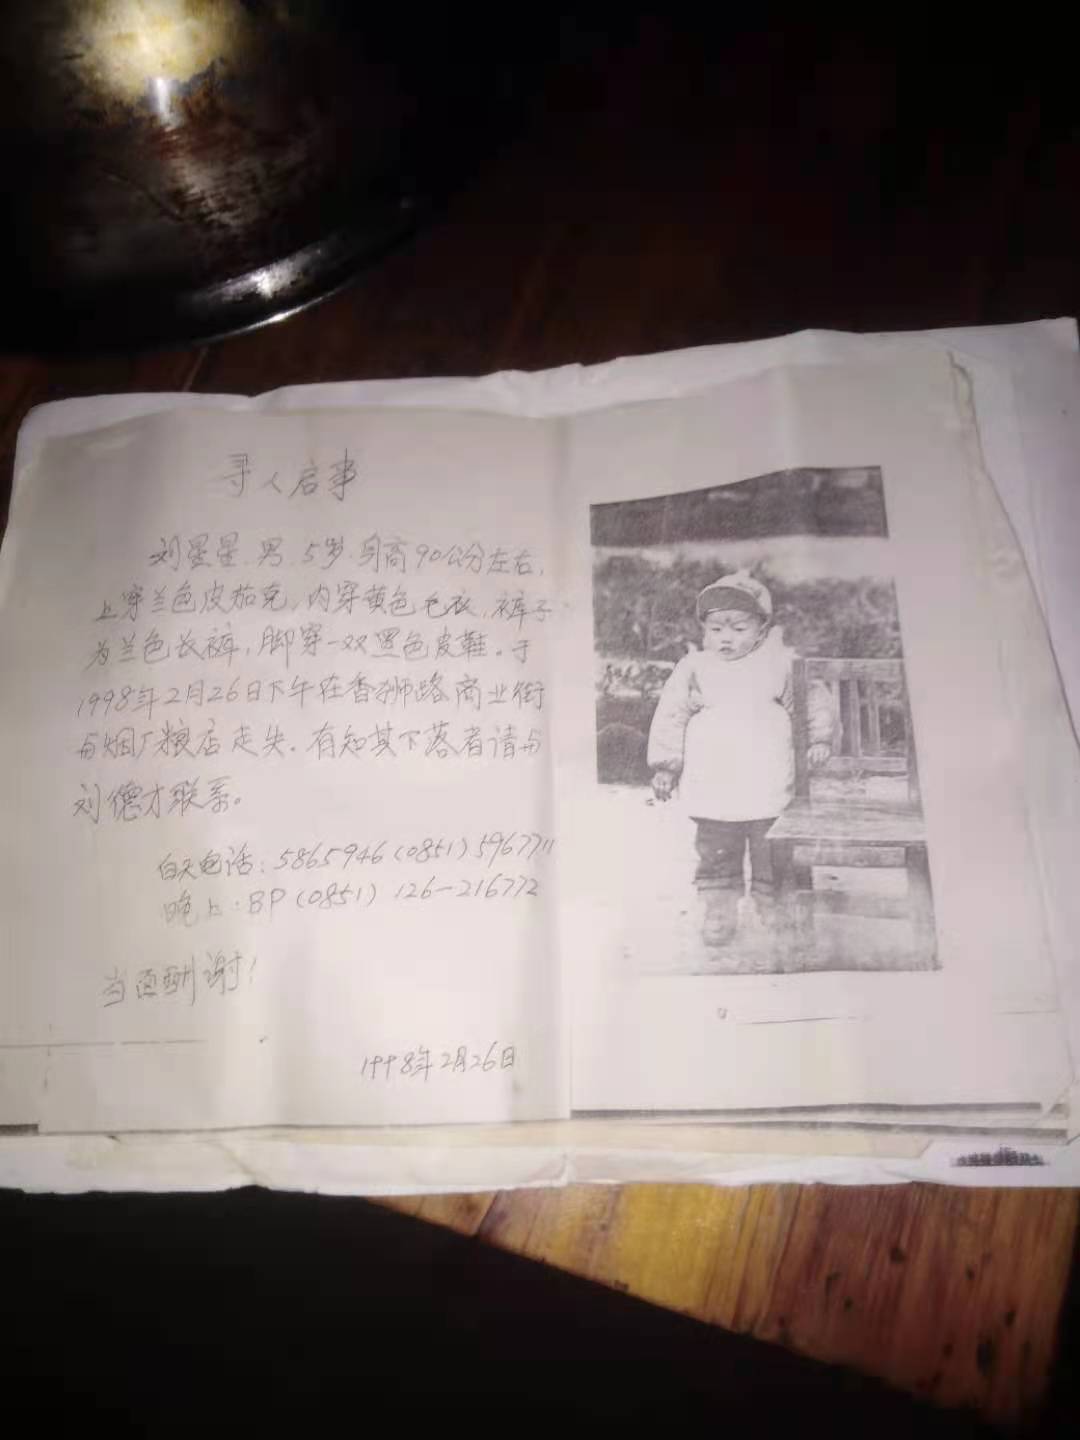 寻人启事
刘星星.男.5岁.身高90公分左右,
上穿兰色皮茄克,内穿黄色毛衣,裤子
为兰色长裤,脚穿一双黑色皮鞋。于
1998年2月26日下午在香狮路商业街
与烟厂粮店走失.有知其下落者请与
刘德才联系。
白天电话:5865946(0851)5967711
晚上:BP(0851)126-216772
当面酬谢!
1998年2月26日